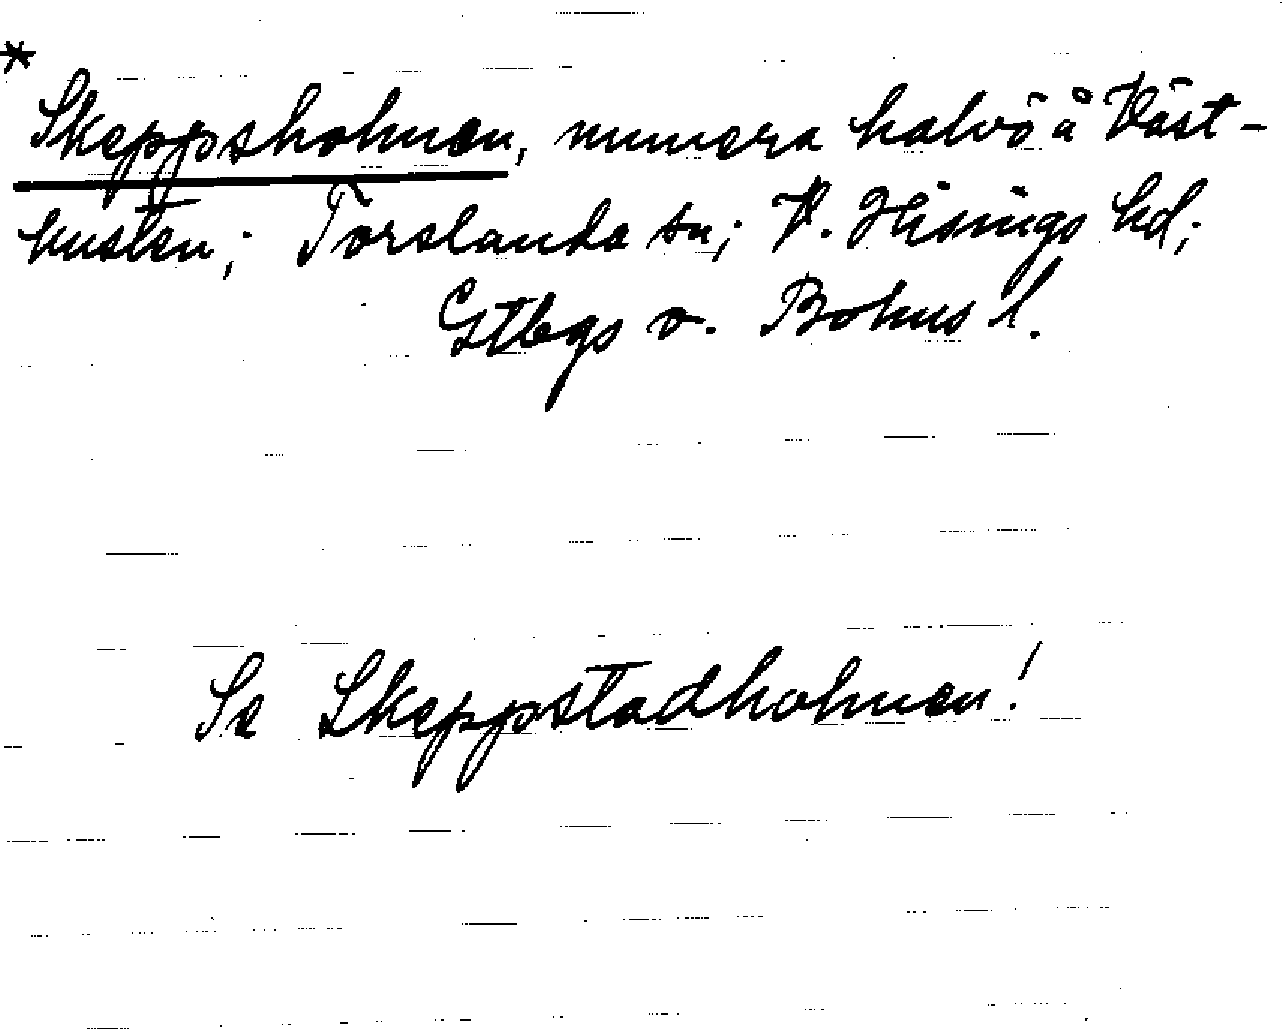 * Skeppsholmen, numera halvö å Väst-
kusten; Torslanda sn; V. Hisings hd;
Gtbgs o. Bohus l.
Se Skeppstadholmen!